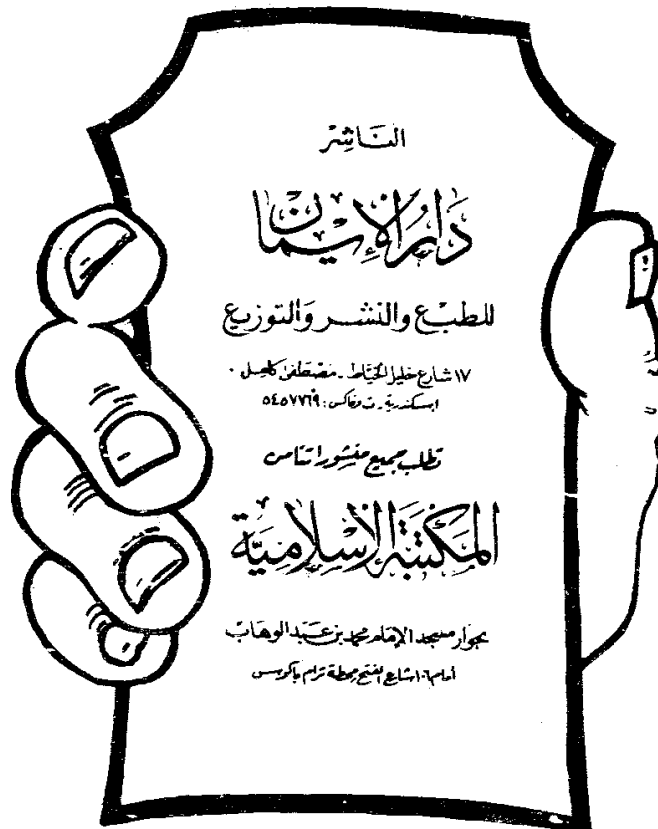 الناشر
دار الإيمان
للطبع والنشر والتوزيع
١٧ شارع خليل الخياط - مصطفى كامل -
اسكندرية - ت وفاكس: ٥٤٥٧٧٦٩
تطلب جميع منشوراتنا من
المكتبة الإسلامية
بجوار مسجد الإمام محمد بن عبد الوهاب
أمام ١٠٦ شارع الفتح محطة ترام باكوس